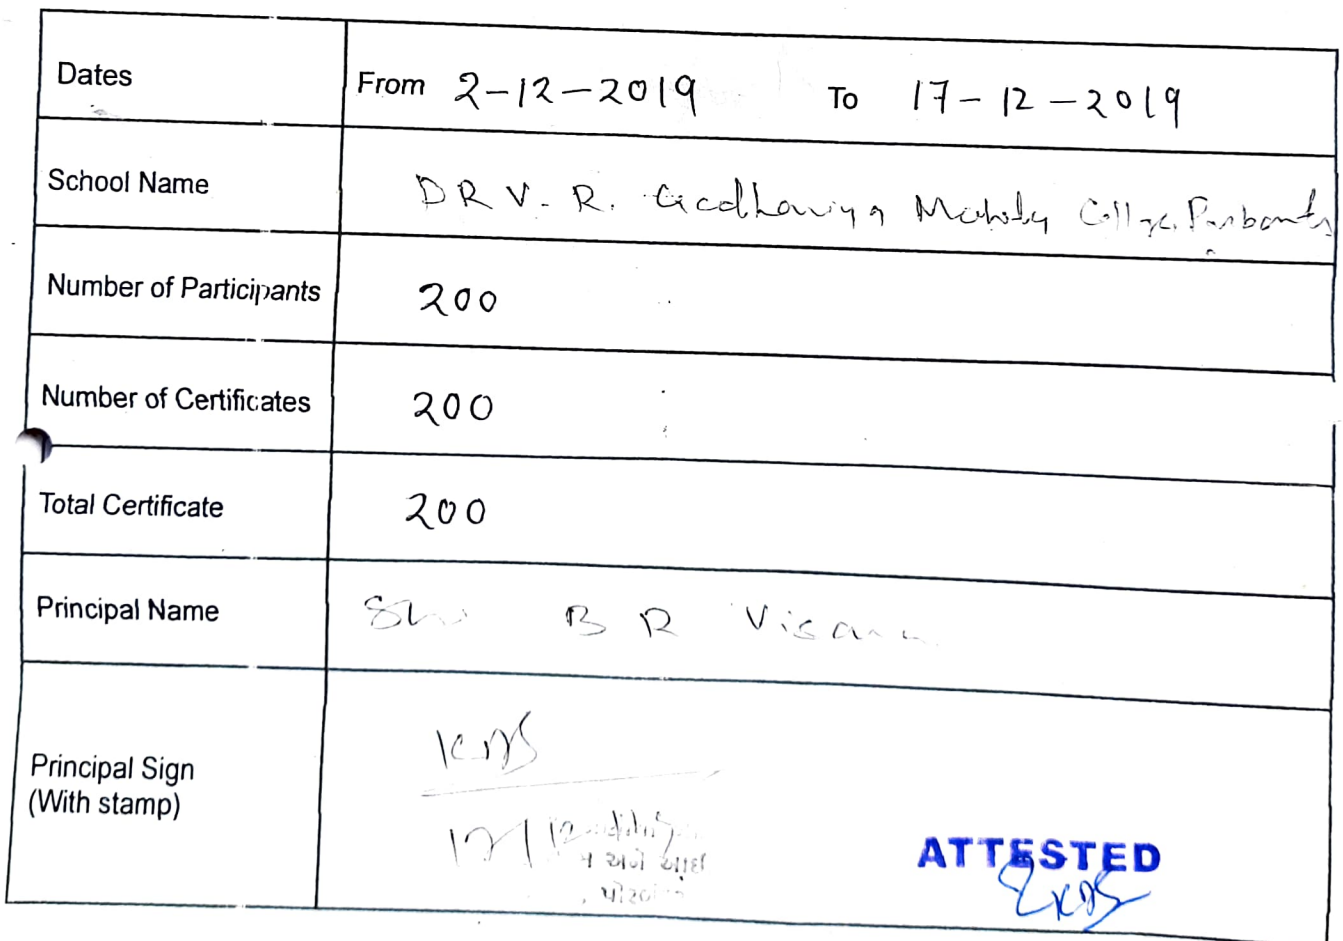 Dates From 2-12-2019 To 17-12-2019
School Name DR V. R. Godhaniya College
Number of Participants 200
Number of Certificates 200
Total Certificate 200
Principal Name B R
Principal Sign
(With stamp)
અને
ATTESTED